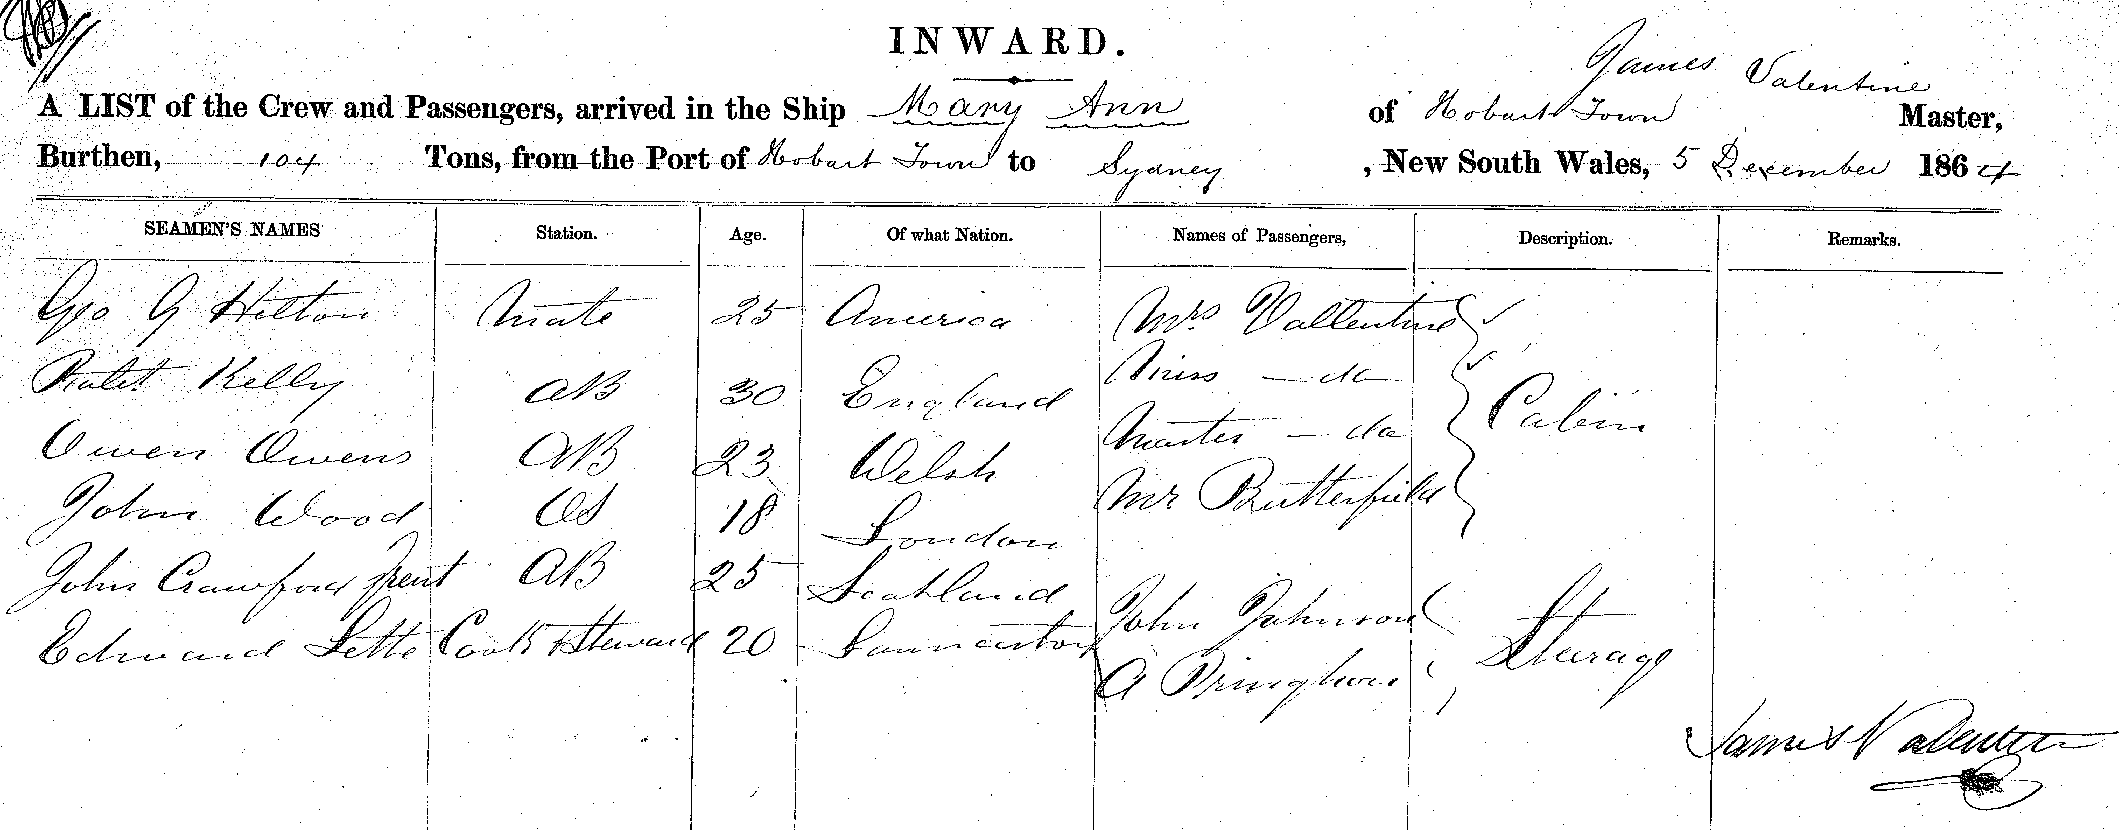 INWARD.
James Valentine
A LIST of the Crew and Passengers, arrived in the Ship Mary Ann of Hobart Town Master,
Burthen, 104 Tons, from the Port of Hobart Town to Sydney, New South Wales, 5 December 1864
SEAMEN'S NAMES Station. Age. Of what Nation. Names of Passengers, Description. Remarks.
Geo G Hilton Mate 25 America Mrs Vallentine
Miss — do
Kelly AB 30 England Cabin
Master — do
Owen Owens AB 23 Welsh
Mr Butterfield
John Wood OS 18 London
John Crawford AB 25 Scotland
John Johnson
Edward Lette Cook & Steward 20 Launceston Sturage
A
James Valentine